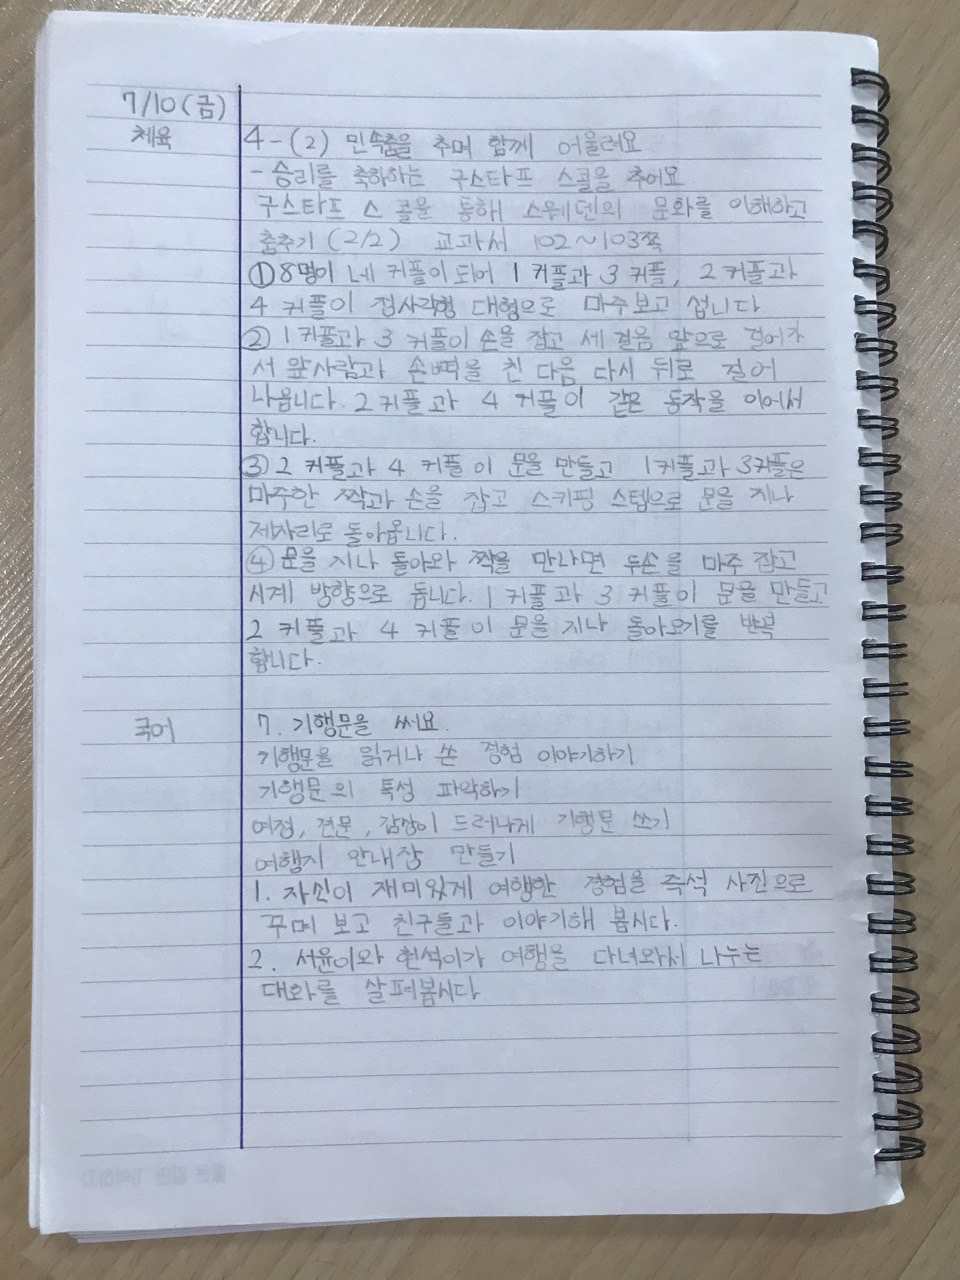 7/10(금)
체육
4-(2) 민속춤을 추며 함께 어울려요
- 승리를 축하하는 구스타프 스콜을 추어요
구스타프 스콜을 통해 스웨덴의 문화를 이해하고
춤추기(2/2) 교과서 102~103쪽
①8명이 네 커플이 되어 1커플과 3커플, 2커플과
4커플이 정사각형 대형으로 마주보고 섭니다
② 1커플과 3커플이 손을 잡고 세 걸음 앞으로 걸어가
서 앞사람과 손뼉을 친 다음 다시 뒤로 걸어
나옵니다. 2커플과 4커플이 같은 동작을 이어서
합니다.
③ 2커플과 4커플이 문을 만들고 1커플과 3커플은
마주한 짝과 손을 잡고 스키핑 스텝으로 문을 지나
제자리로 돌아옵니다.
④ 문을 지나 돌아와 짝을 만나면 두손을 마주 잡고
시계 방향으로 돕니다. 1커플과 3커플이 문을 만들고
2커플과 4커플이 문을 지나 돌아오기를 반복
합니다.
국어
7. 기행문을 써요.
기행문을 읽거나 쓴 경험 이야기하기
기행문의 특성 파악하기
여정, 견문, 감상이 드러나게 기행문 쓰기
여행지 안내장 만들기
1. 자신이 재미있게 여행한 경험을 즉석 사진으로
꾸며 보고 친구들과 이야기해 봅시다.
2. 서윤이와 현석이가 여행을 다녀와서 나누는
대화를 살펴봅시다